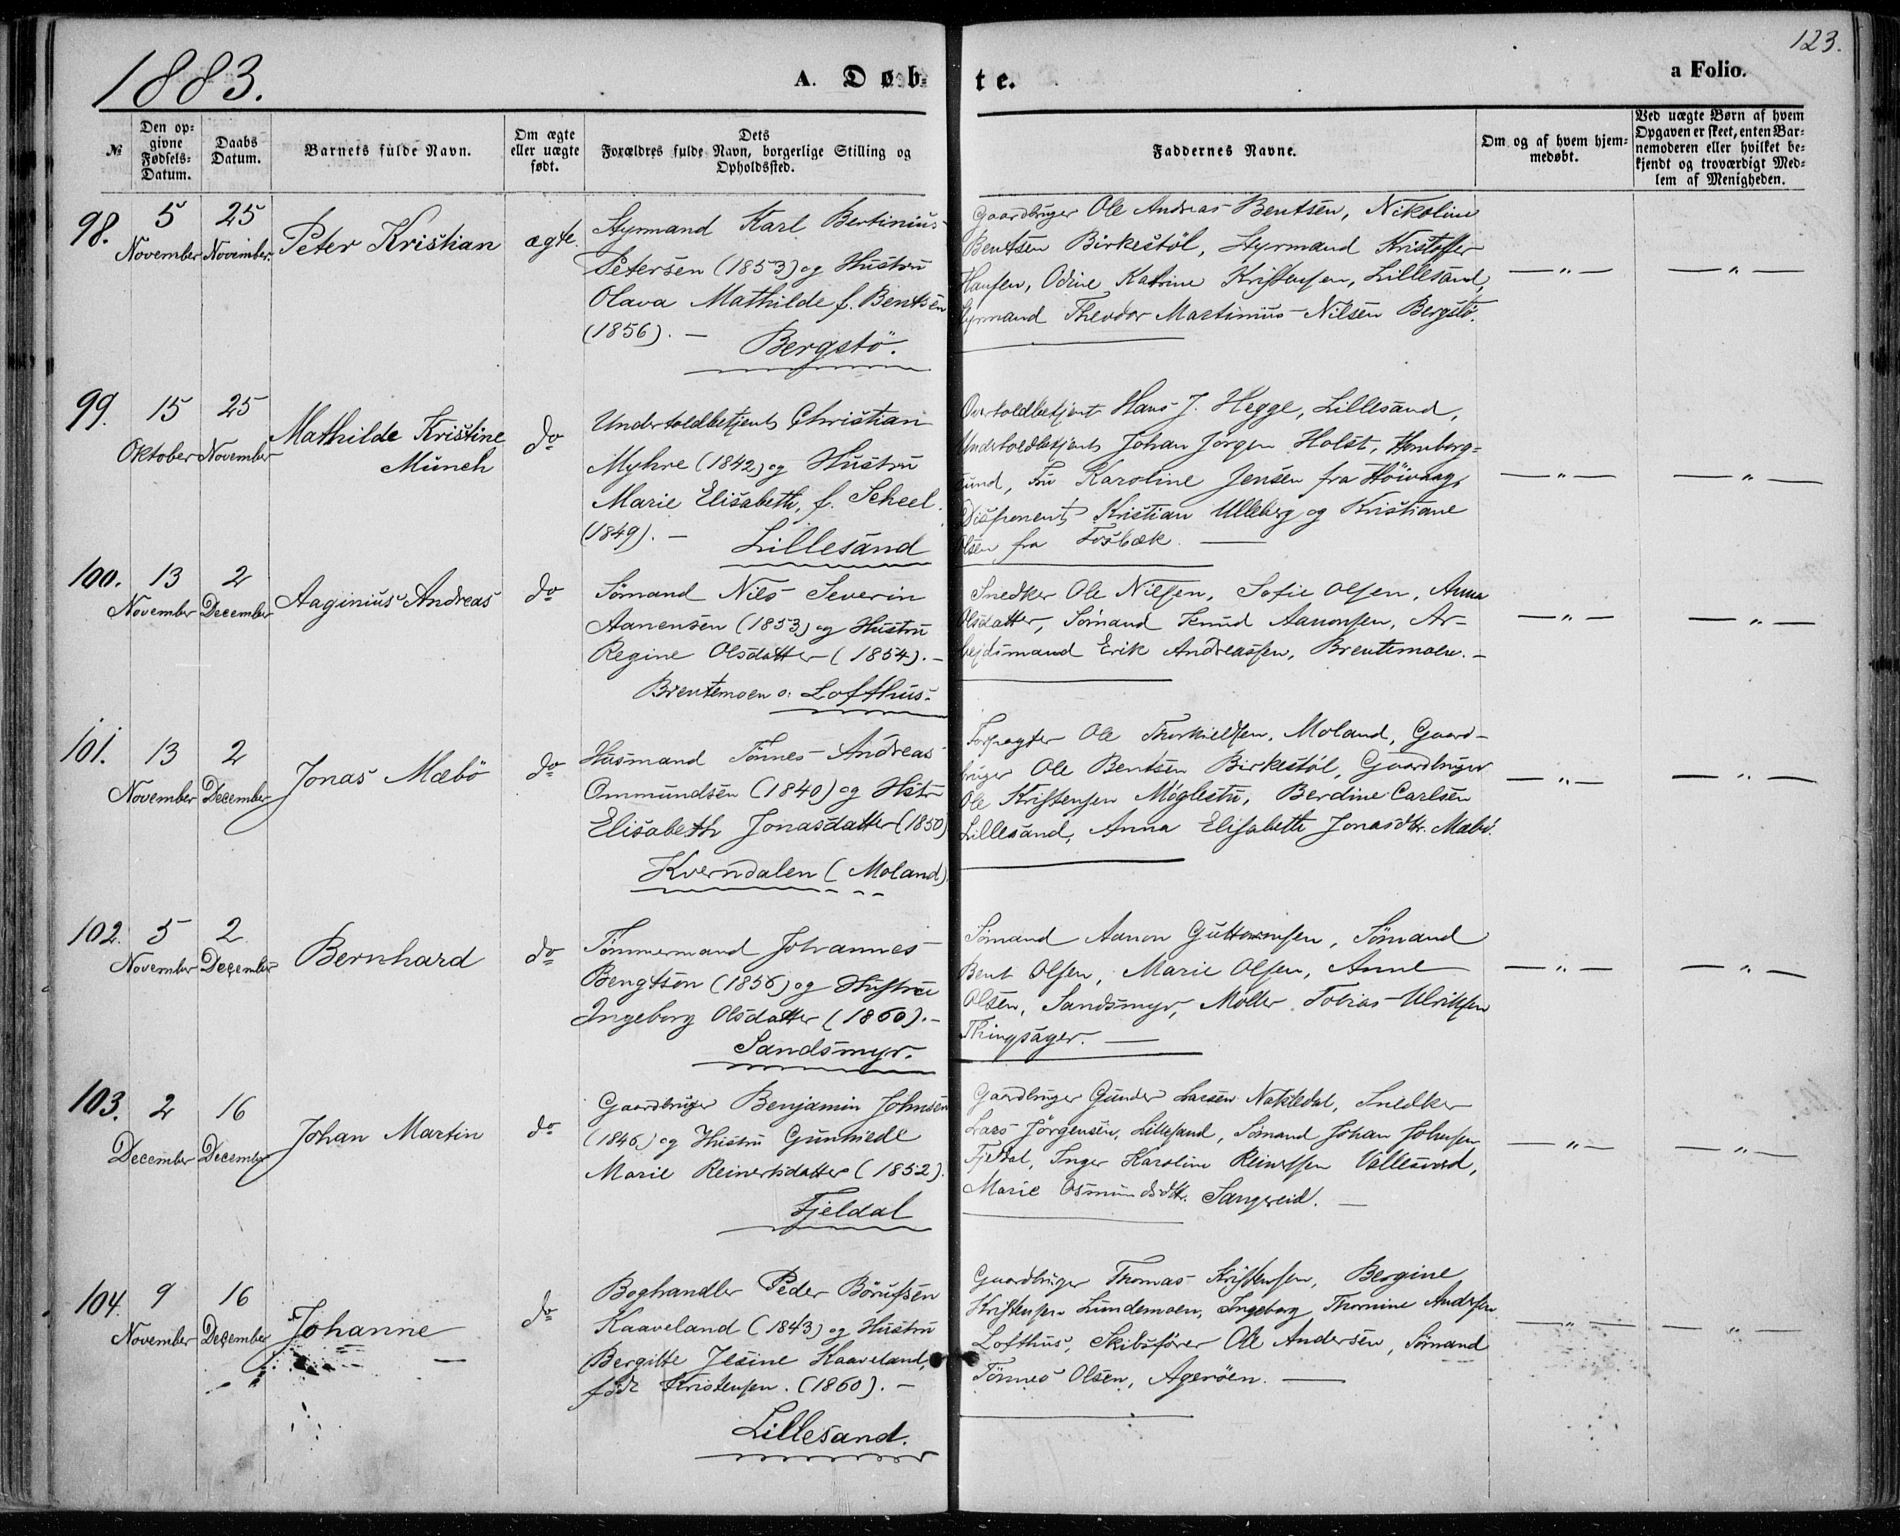 1883.
A. Døb-
te.
a Folio.
123.
№
Den op-
givne
Fødsels-
Datum.
Daabs
Datum.
Barnets fulde Navn.
Om ægte
eller uægte
født.
Dets
Forældres fulde Navn, borgerlige Stilling og
Opholdssted.
Faddernes Navne.
Om og af hvem hjem-
medøbt.
Ved uægte Børn af hvem
Opgaven er skeet, enten Bar-
nemoderen eller hvilket be-
kjendt og troværdigt Med-
lem af Menigheden.
98.
5
November
25
November.
Peter Kristian
ægte.
Styrmand Karl Bertinius
Petersen (1853) og Hustru
Olava Mathilde f. Bentsen
(1856). —
Bergstö.
Gaardbruger Ole Andreas Bentsen, Nikoline
Bentsen Birkestöl, Styrmand Kristoffer
Hansen, Odine Katrine Kristensen, Lillesand,
Styrmand Theodor Martinius Nilsen Bergstö.
— „ —
— „ —
99.
15
Oktober
25
November
Mathilde Kristine
Munch
do
Undertoldbetjent Christian
Myhre (1842) og Hustru
Marie Elisabeth, f. Scheel.
(1849). —
Lillesand
Overtoldbetjent Hans J. Hegge, Lillesand,
Undertoldbetjent Johan Jörgen Holst, Homborg-
sund, Fru Karoline Jensen fra Höivaag,
Disponent Kristian Ulleberg og Kristiane
Olsen fra Fosbæk. —
— „ —
— „ —
100.
13
November
2
December
Aaginius Andreas
do
Sömand Nils Severin
Aanensen (1853) og Hustru
Regine Olsdatter (1854). —
Brentemoen o: Lofthus.
Snedker Ole Nilsen, Sofie Olsen, Anna
Olsdatter, Sömand Knud Aanonsen, Ar-
beidsmand Erik Andreassen, Brentemoen. —
— „ —
— „ —
101.
13
November
2
December
Jonas Mæbö
do
Husmand Tönnes Andreas
Ommundsen (1840) og Hstr
Elisabeth Jonasdatter (1850)
Kverndalen (Moland).
Forpagter Ole Thorkildsen, Moland, Gaard-
bruger Ole Bentsen Birkestöl, Gaardbruger
Ole Kristensen Möglestu, Berdine Carlsen
Lillesand, Anna Elisabeth Jonasdtr. Mæbö.
— „ —
— „ —
102.
5
November
2
December
Bernhard
do
Tömmermand Johannes
Bengtson (1856) og Hustru
Ingeborg Olsdatter (1860). —
Sandsmyr.
Sömand Aanon Guttormsen, Sömand
Bent Olsen, Marie Olsen, Anne
Olsen, Sandsmyr, Möller Tobias Ulriksen
Thingsager. —
— „ —
— „ —
103.
2
December
16
December
Johan Martin
do
Gaardbruger Benjamin Johnsen
(1846) og Hustru Gunhilde
Marie Reinertsdatter (1852).
Fjeldal
Gaardbruger Gunder Larsen Natvedal, Snedker
Lars Jörgensen, Lillesand, Sömand Johan Johnsen
Fjeldal, Inger Karoline Reinertsen Vallesverd,
Marie Osmundsdtr. Sangereid. —
— „ —
— „ —
104.
9
November
16
December
Johanne
—
do
Boghandler Peder Börufsen
Kaaveland (1843) og Hustru
Bergitte Jesine Kaaveland,
född Kristensen. (1860). —
Lillesand.
Gaardbruger Thomas Kristensen, Bergine
Kristensen Lundemoen, Ingeborg Thomine Andersen
Lofthus, Skibsförer Ole Andersen, Sömand
Tönnes Olsen, Ageröen. —
— „ —
— „ —